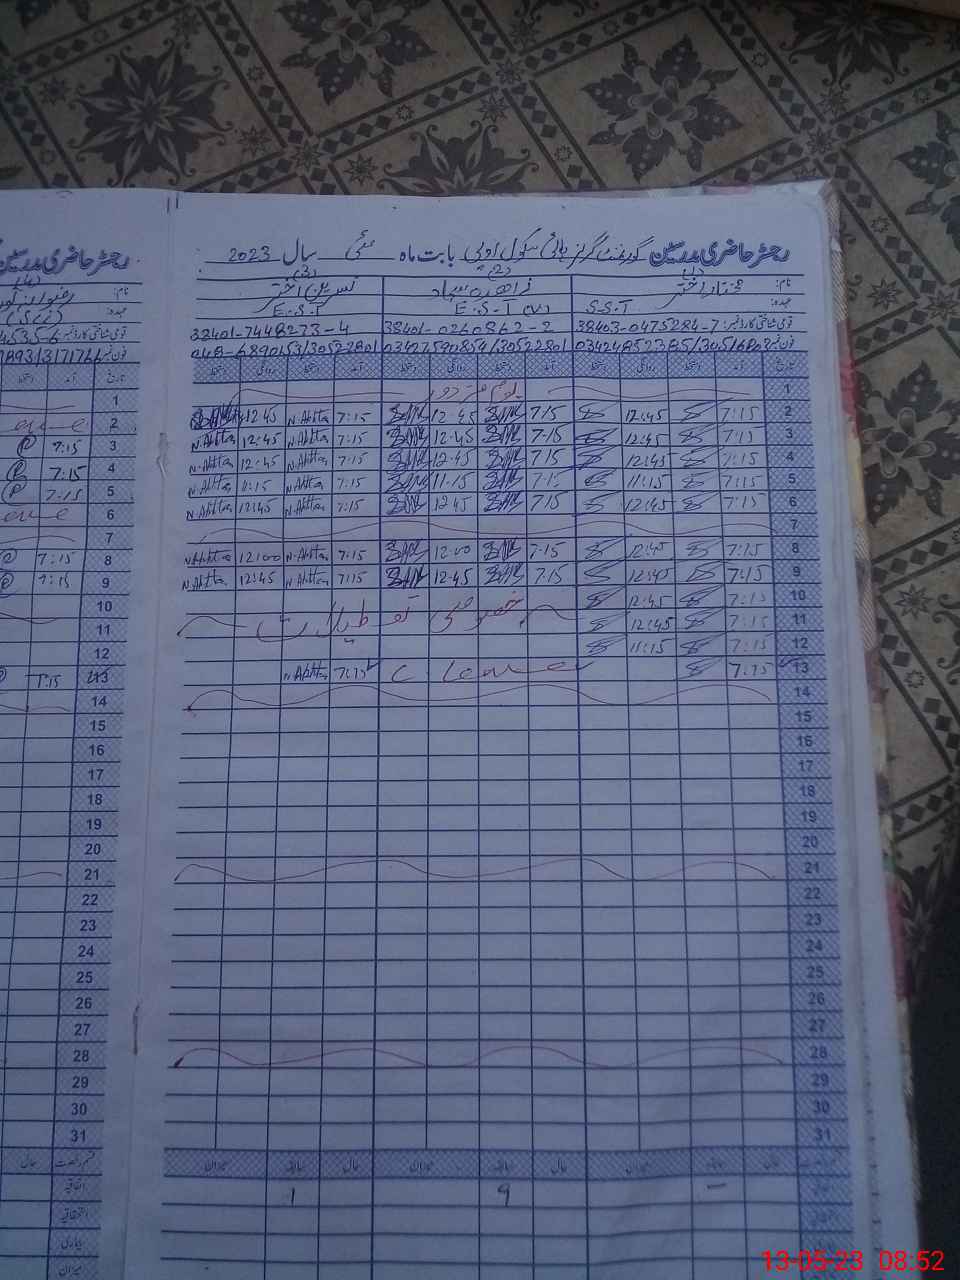 رجسٹر حاضری مدرسین گورنمنٹ گرلز ہائی سکول بابت ماہ مئی سال 2023
(1) (2) (3)
نام: مختار اختر نسرین اختر
عہدہ: S.S.T E.S.T E.S.T
قومی شناختی کارڈ نمبر: 38403-0475284-7 38401-0260862-2 38401-7448273-4
فون نمبر 03427590854/30522801
تاریخ آمد دستخط روانگی دستخط آمد دستخط روانگی دستخط آمد دستخط روانگی دستخط
1 یوم مزدور
2 7:15 12:45 7:15 12:45 7:15 N.Akhtar 12:45
3 7:15 12:45 7:15 12:45 7:15 N.Akhtar 12:45 N.Akhtar
4 7:15 12:45 7:15 12:45 7:15 N.Akhtar 12:45 N.Akhtar
5 7:15 11:15 7:15 11:15 7:15 N.Akhtar 11:15 N.Akhtar
6 7:15 12:45 7:15 12:45 7:15 N.Akhtar 12:45 N.Akhtar
7
8 7:15 12:45 7:15 12:00 7:15 N.Akhtar 12:00 N.Akhtar
9 7:15 12:45 7:15 12:45 7:15 N.Akhtar 12:45 N.Akhtar
10 7:15 12:45 خصوصی تعطیلات
11 7:15 12:45
12 7:15 11:15
13 7:15 C. Leave 7:15 N.Akhtar
14
15
16
17
18
19
20
21
22
23
24
25
26
27
28
29
30
31
حال سابقہ میزان حال سابقہ میزان
– 9 1
رجسٹر حاضری مدرسین
(4)
نام:
عہدہ:
قومی شناختی کارڈ نمبر:
فون نمبر
تاریخ آمد دستخط
1
2
3 7:15
4 7:15
5 7:15
6
7
8 7:15
9 7:15
10
11
12
13 7:15
14
15
16
17
18
19
20
21
22
23
24
25
26
27
28
29
30
31
قسم رخصت حال
اتفاقیہ
استحقاقیہ
بیماری
میزان
13-05-23 08:52